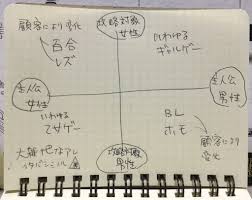 攻略対象
女性
顧客により変化
百合
レズ
いわゆる
ギャルゲー
主人公
女性
主人公
男性
いわゆる
乙女ゲー
BL
ホモ
大雑把なアレ
顧客により
変化
攻略対象
男性